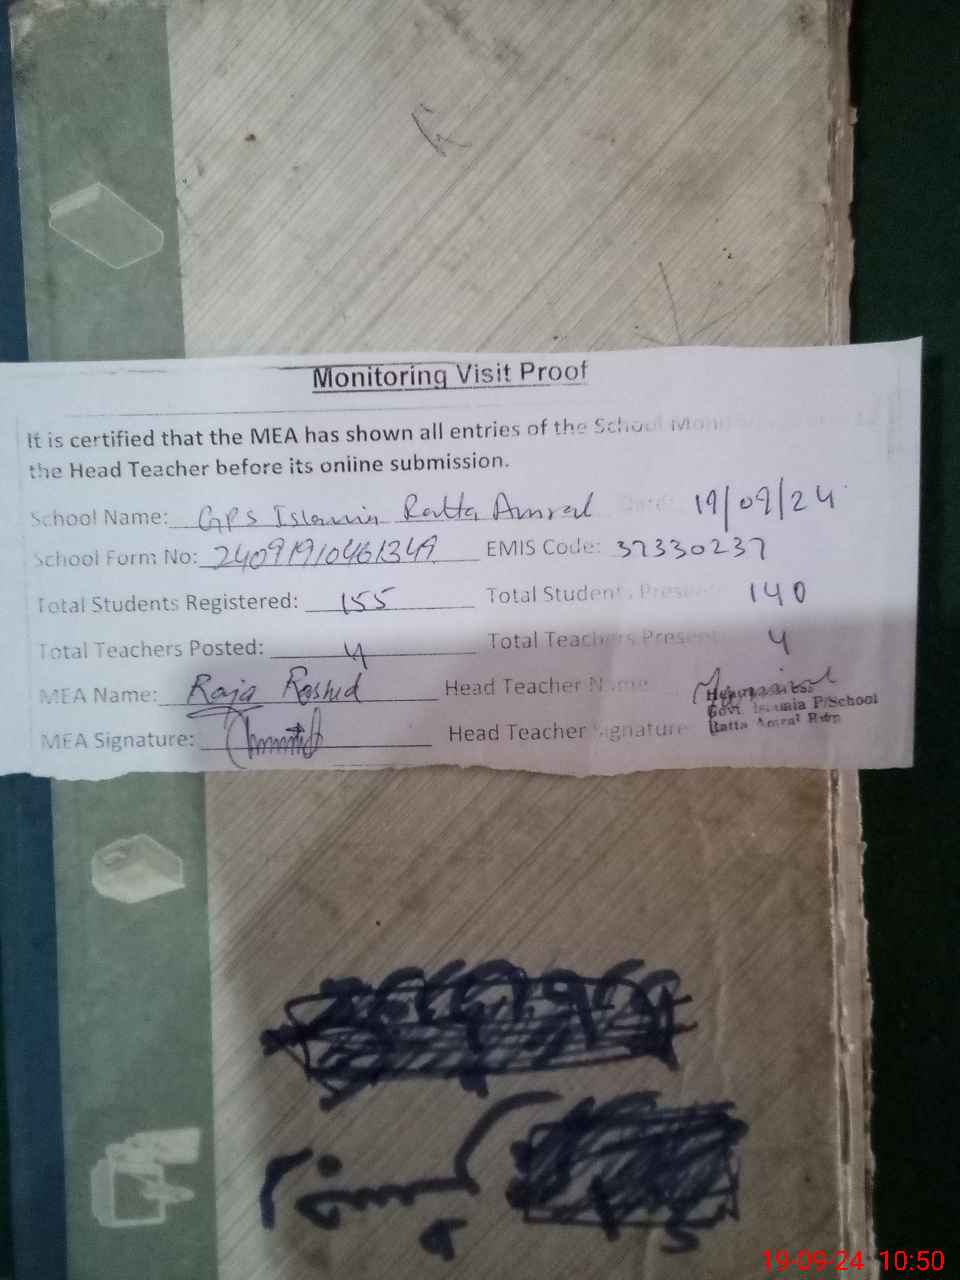 Monitoring Visit Proof
It is certified that the MEA has shown all entries of the School
the Head Teacher before its online submission.
School Name: GPS Islamia Ratta Amral Date: 19/09/24
School Form No: EMIS Code: 37330237
Total Students Registered: 155 Total Students Present 140
Total Teachers Posted: 4 Total Teachers Present 4
MEA Name: Raja Rashid Head Teacher Name
Govt. Islamia P/School
MEA Signature: Head Teacher Signature Ratta Amral Rwp
19-09-24 10:50